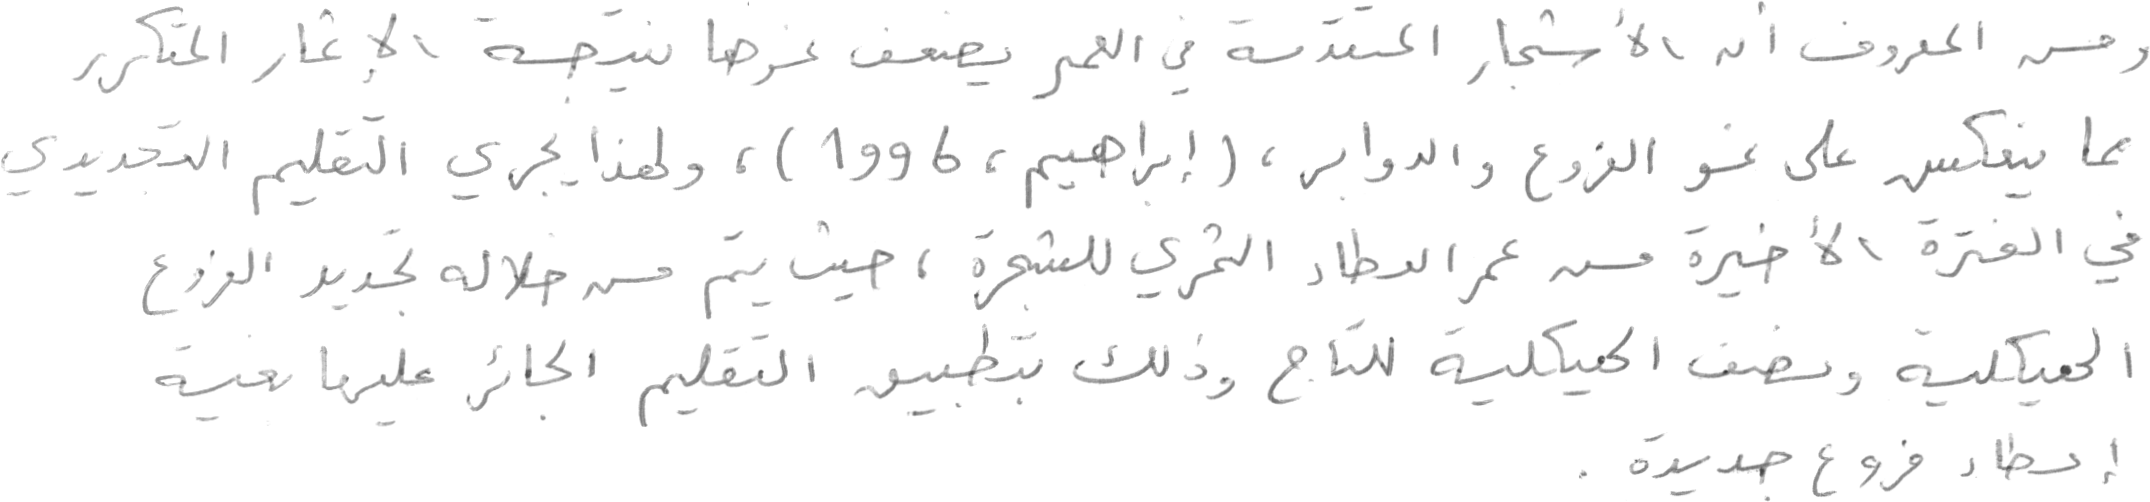 ومن المعروف أن الأشجار المتقدمة في العمر يضعف نموها نتيجة الإثمار المتكرر
مما ينعكس على نمو الفروع والدوابر، (إبراهيم، 1996)، ولهذا يجري التقليم التجديدي
في الفترة الأخيرة من عمر العطاء الثمري للشجرة، حيث يتم من خلاله تجديد الفروع
الهيكلية ونصف الهيكلية للتاج وذلك بتطبيق التقليم الجائر عليها بغية
إعطاء فروع جديدة.